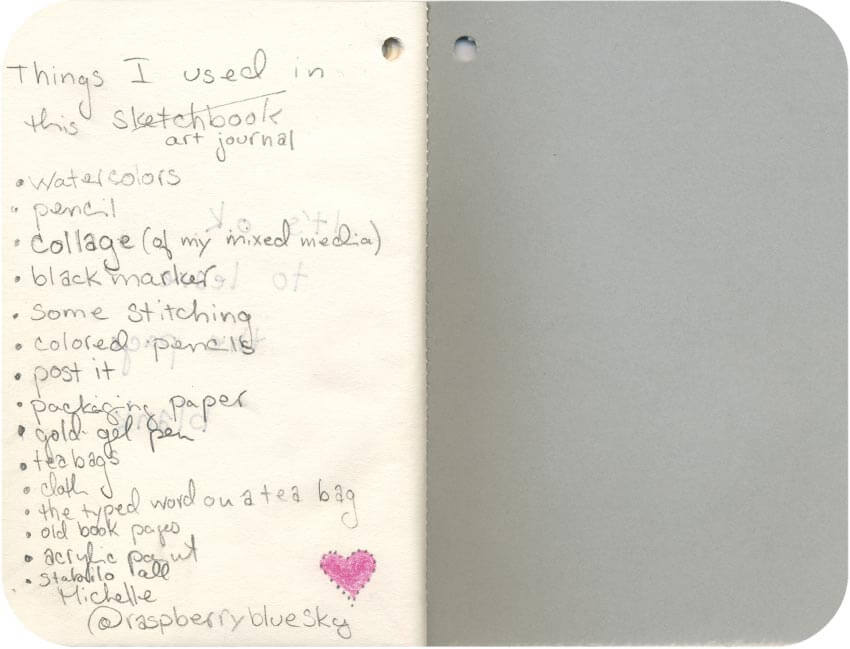 Things I used in
this sketchbook
art journal
• watercolors
• pencil
• collage (of my mixed media)
• black marker
• some stitching
• colored pencils
• post it
• packaging paper
• gold gel pen
• tea bags
• cloth
• the typed word on a tea bag
• old book pages
• acrylic paint
• stabilo all
Michelle
@raspberrybluesky